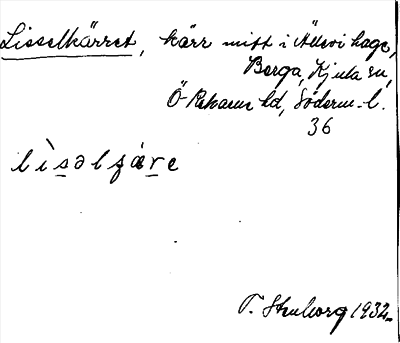 Lisselkärret, kärr mitt i Ällevi hage,
Berga, Kjula sn,
Ö-Rekarne hd, Söderm.l.
36
lìsəlɕáre
T. Stenborg 1932.